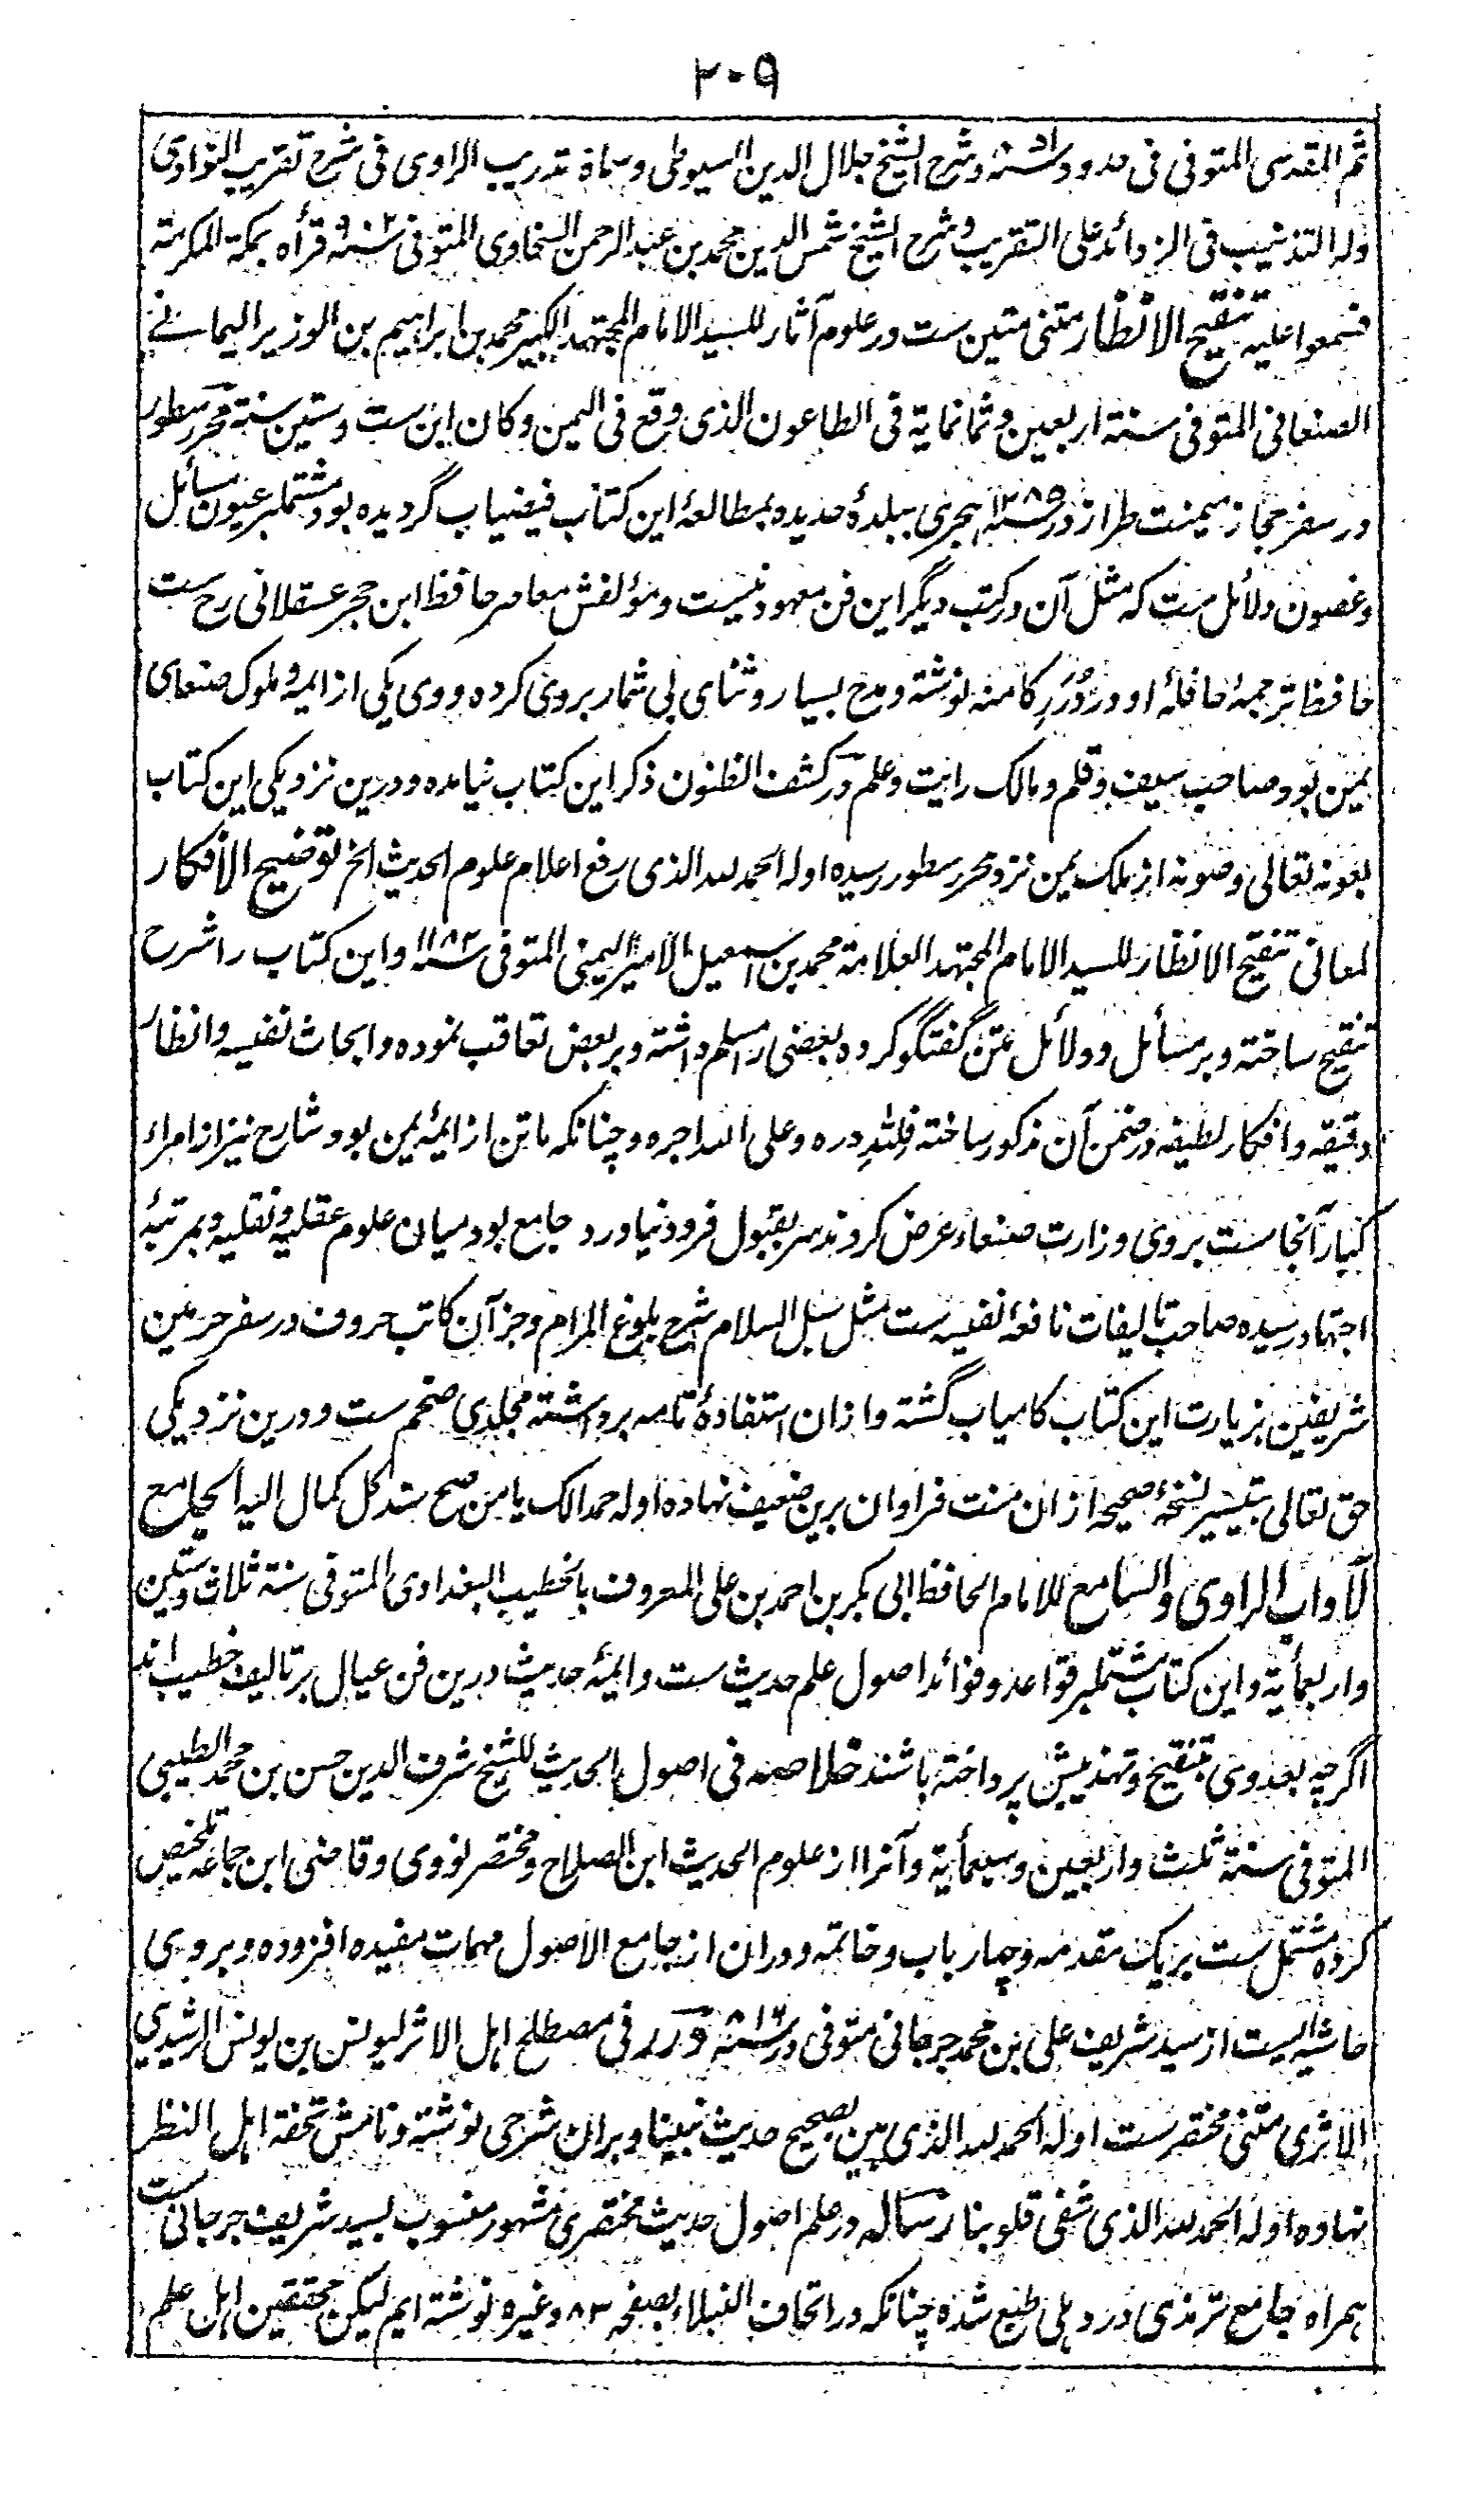 ۲۰۹
ثم المقدسی المتوفی فی حدود سنه ۸۵۱ و شرح الشیخ جلال الدین السیوطی وسماه تدریب الراوی فی شرح تقریب النوادی
وله التذنیب فی الزوائد علی التقریب و شرح الشیخ شمس الدین محمد بن عبد الرحمن السخاوی المتوفی سنه ۹۰۲ قرأه بمکة المکرمة
فسمعوا علیه تنقیح الانظار متنی متین ست در علوم آثار للسید الامام المجتهد الکبیر محمد بن ابراهیم بن الوزیر الیمانی
الصنعانی المتوفی سنة اربعین و ثمانمایة فی الطاعون الذی وقع فی الیمن و کان ابن ست و ستین سنة محرر سطور
در سفر حجاز میمنت طراز در سنه ۱۲۸۵ هجری ببلدۀ حدیده بمطالعۀ این کتاب فیضیاب گردیده بود مشتملبر عیون مسائل
و غصون دلائل ست که مثل آن در کتب دیگر این فن معهود نیست و مؤلفش معاصر حافظ ابن حجر عسقلانی رح ست
حافظ ترجمۀ حافلۀ او در دُرَرِ کامنه نوشته و مدح بسیار و ثنای بی شمار بروی کرده و وی یکی از ایمه و ملوک صنعای
یمن بود صاحب سیف و قلم و مالک رایت و علم در کشف الظنون ذکر این کتاب نیامده و درین نزدیکی این کتاب
بعونه تعالی و صونه از ملک یمن نزد محرر سطور رسیده اوله الحمد لله الذی رفع اعلام علوم الحدیث الخ توضیح الافکار
لمعانی تنقیح الانظار للسید الامام المجتهد العلامة محمد بن اسمعیل الامیر الیمنی المتوفی سنه ۱۱۸۲ و این کتاب را شرح
تنقیح ساخته و بر مسائل و دلائل متن گفتگو کرده بعضی را مسلم داشته و بر بعض تعاقب نموده و ابحاث نفیسه و انظار
دقیقه و افکار لطیفه در ضمن آن مذکور ساخته فلِلّٰهِ دره و علی الله اجره و چنانکه ماتن از ایمۀ یمن بود شارح نیز از امراء
کبار آنجاست بروی وزارت صنعاء عرض کردند سر بقبول فرود نیاورد جامع بود میان علوم عقلیه و نقلیه و بمرتبۀ
اجتهاد رسیده صاحب تالیفات نافعه نفیسه ست مثل سبل السلام شرح بلوغ المرام و جز آن کاتب حروف در سفر حرمین
شریفین بزیارت این کتاب کامیاب گشته و ازان استفادۀ تامه برداشته مجلدی ضخم ست و درین نزدیکی
حق تعالی بتیسیر نسخۀ صحیحه ازان منت فراوان برین ضعیف نهاده اوله حمدا لک یا من صح سند کل کمال الیه الجامع
لآداب الراوی والسامع للامام الحافظ ابی بکر بن احمد بن علی المعروف بالخطیب البغدادی المتوفی سنة ثلاث و ستین
و اربعمأیة و این کتاب مشتملبر قواعد و فوائد اصول علم حدیث ست و ایمۀ حدیث درین فن عیال بر تالیف خطیب اند
اگرچه بعد وی بتنقیح و تهذیبش پرداخته باشند خلاصه فی اصول الحدیث للشیخ شرف الدین حسن بن محمد الطیبی
المتوفی سنة ثلث و اربعین و سبعمأیة و آنرا از علوم الحدیث ابن الصلاح و مختصر نووی و قاضی ابن جماعه تلخیص
کرده مشتمل ست بر یک مقدمه و چهار باب و خاتمه و دران از جامع الاصول مهمات مفیده افزوده و بروی
حاشیه ایست از سید شریف علی بن محمد جرجانی متوفی در سنه ۸۱۶ درر فی مصطلح اهل الاثر لیونس بن یونس الرشیدی
الاثری متنی مختصر ست اوله الحمد لله الذی من بصحیح حدیث نبینا و بران شرحی نوشته و نامش تحفة اهل النظر
نهاده اوله الحمد لله الذی شفی قلوبنا رساله در علم اصول حدیث مختصری مشهور منسوب بسید شریف جرجانی ست
همراه جامع ترمذی در دهلی طبع شده چنانکه در اتحاف النبلاء بصفحه ۸۳ وغیره نوشته ایم لیکن محققین اهل علم